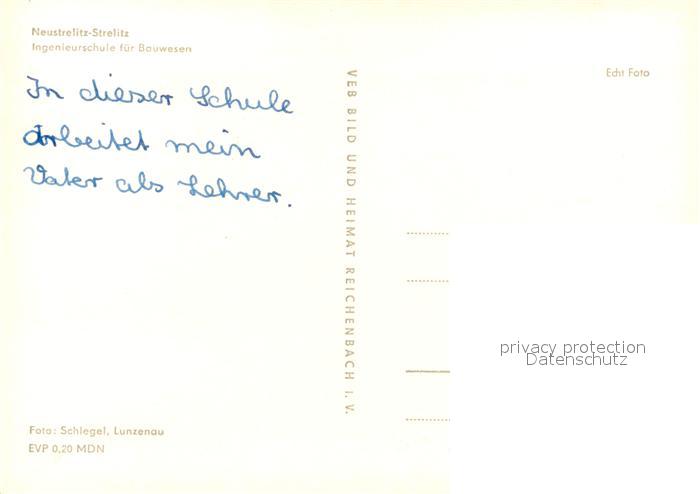 Neustrelitz-Strelitz
Ingenieurschule für Bauwesen
In dieser Schule
arbeitet mein
Vater als Lehrer.
VEB BILD UND HEIMAT REICHENBACH I. V.
Echt Foto
privacy protection
Datenschutz
Foto: Schlegel, Lunzenau
EVP 0,20 MDN